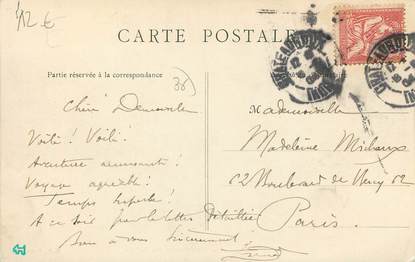 12 €
CARTE POSTALE
CHATEAUROUX
INDRE
Partie réservée à la correspondance
38
Chère Demoiselle
Voilà! Voilà!
Aventure
Voyage agréable!
Temps superbe!
A ce soir par la lettre détaillée
Bien à vous sincèrement
Mademoiselle
Madeleine Michaux
62 Boulevard de Bercy 62
Paris.